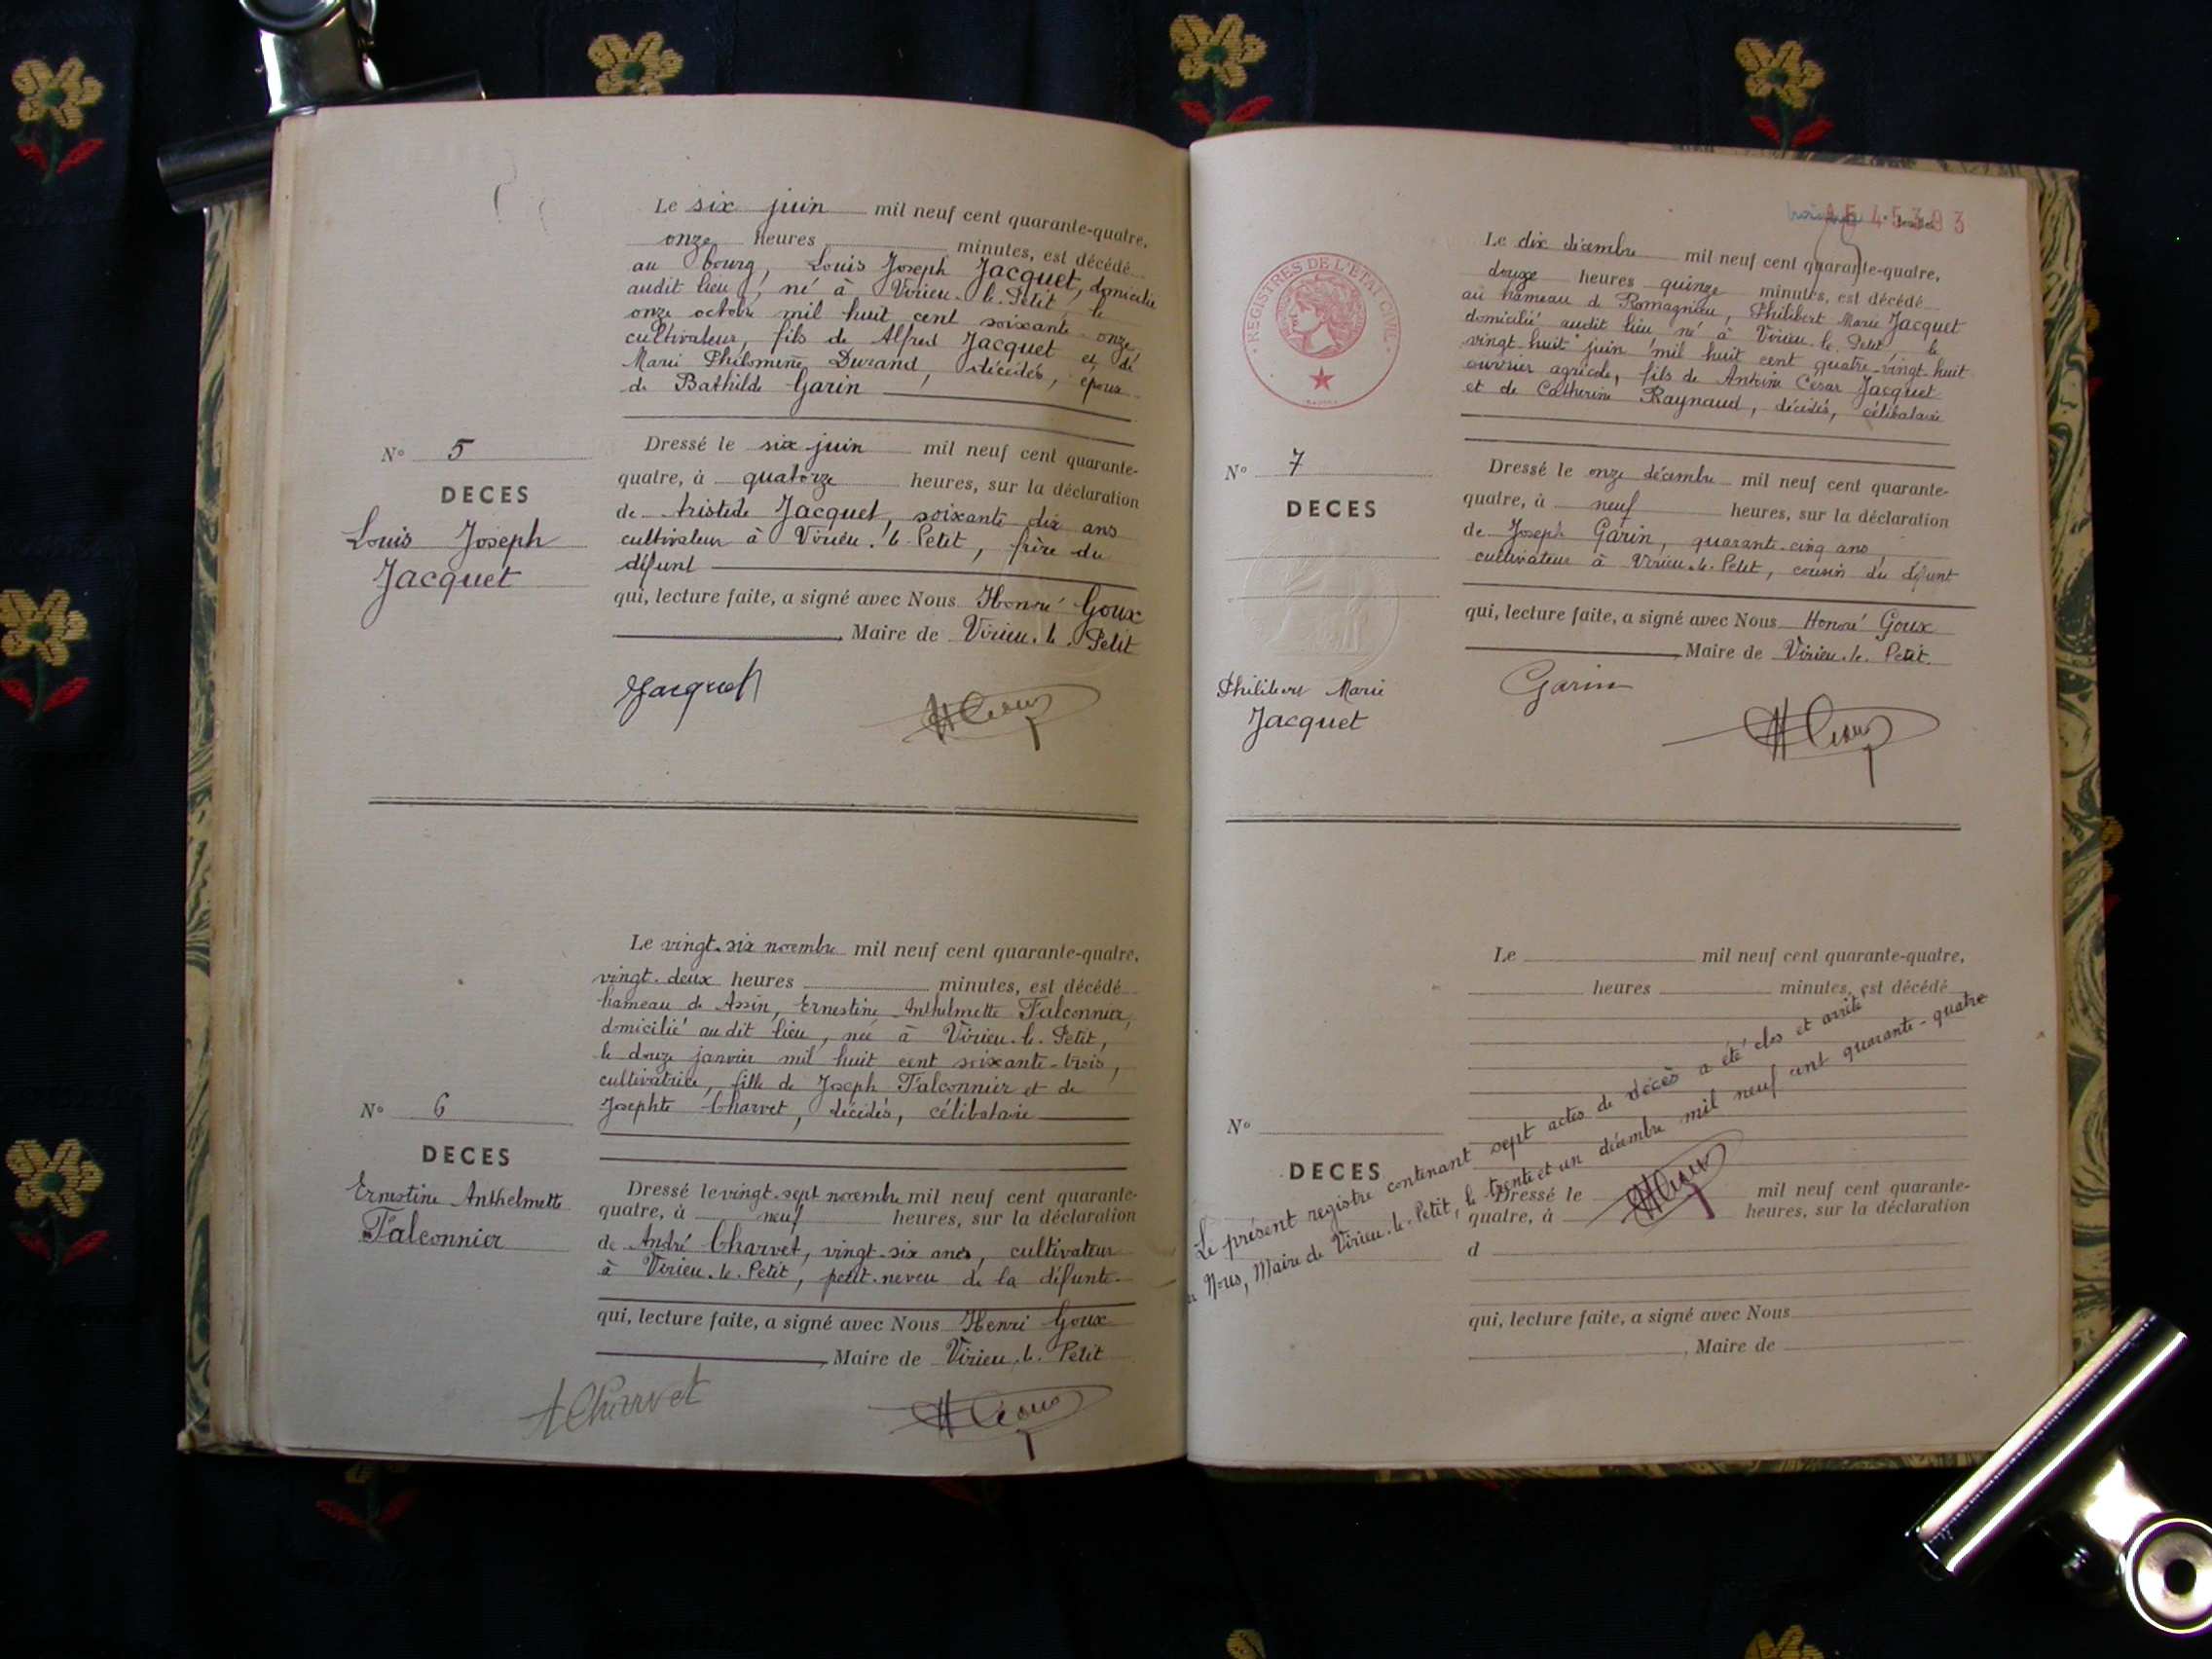 Le six juin mil neuf cent quarante-quatre,
onze heures minutes, est décédé
au bourg, Louis Joseph Jacquet, domicilié
audit lieu, né à Virieu-le-Petit, le
onze octobre mil huit cent soixante-onze,
cultivateur, fils de Alfred Jacquet et de
Marie Philomène Durand, décédés, époux
de Bathilde Garin
N° 5
DECES
Louis Joseph
Jacquet
Dressé le six juin mil neuf cent quarante-
quatre, à quatorze heures, sur la déclaration
de Aristede Jacquet, soixante dix ans
cultivateur à Virieu-le-Petit, frère du
défunt
qui, lecture faite, a signé avec Nous Honoré Goux
Maire de Virieu-le-Petit
Jacquet
H Goux
Le vingt-six novembre mil neuf cent quarante-quatre,
vingt-deux heures minutes, est décédé
hameau de Assin, Ernestine Anthelmette Falconnier,
domicilié audit lieu, née à Virieu-le-Petit,
le douze janvier mil huit cent soixante-trois,
cultivatrice, fille de Joseph Falconnier et de
Josephte Charvet, décédés, célibataire
N° 6
DECES
Ernestine Anthelmette
Falconnier
Dressé le vingt-sept novembre mil neuf cent quarante-
quatre, à neuf heures, sur la déclaration
de André Charvet, vingt-six ans, cultivateur
à Virieu-le-Petit, petit-neveu de la défunte
qui, lecture faite, a signé avec Nous Henri Goux
Maire de Virieu-le-Petit
A Charvet
H Goux
REGISTRES DE L'ETAT CIVIL
Le dix décembre mil neuf cent quarante-quatre,
douze heures quinze minutes, est décédé
au hameau de Romagnieu, Philibert Marie Jacquet
domicilié audit lieu né à Virieu-le-Petit, le
vingt-huit juin mil huit cent quatre-vingt-huit
ouvrier agricole, fils de Antoine César Jacquet
et de Catherine Raynaud, décédés, célibataire
N° 7
DECES
Philibert Marie
Jacquet
Dressé le onze décembre mil neuf cent quarante-
quatre, à neuf heures, sur la déclaration
de Joseph Garin, quarante-cinq ans,
cultivateur à Virieu-le-Petit, cousin du défunt
qui, lecture faite, a signé avec Nous Honoré Goux
Maire de Virieu-le-Petit
Garin
H Goux
Le mil neuf cent quarante-quatre,
heures minutes, est décédé
N°
DECES
Le présent registre contenant sept actes de décès a été clos et arrêté
Nous, Maire de Virieu-le-Petit, le trente et un décembre mil neuf cent quarante-quatre
H Goux
Dressé le mil neuf cent quarante-
quatre, à heures, sur la déclaration
d
qui, lecture faite, a signé avec Nous
, Maire de